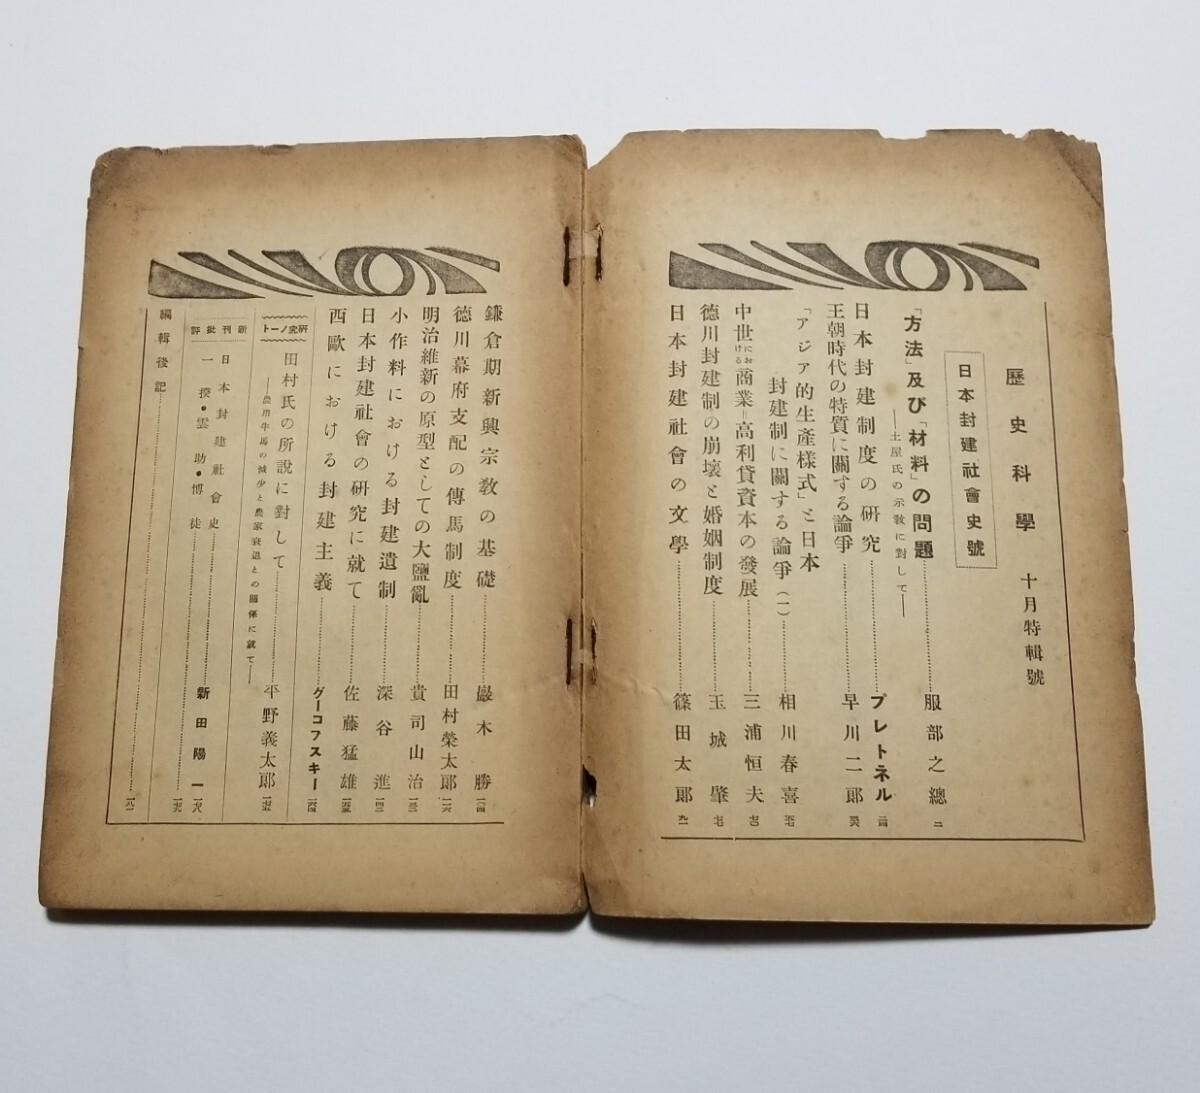 歷史科學 十月特輯號
日本封建社會史號
「方法」及び「材料」の問題 服部之總 二
――土屋氏の示敎に對して――
日本封建制度の研究 プレトネル 二四
王朝時代の特質に關する論爭 早川二郎
「アジア的生產樣式」と日本
封建制に關する論爭(一) 相川春喜
中世における商業=高利貸資本の發展 三浦恒夫 七〇
德川封建制の崩壞と婚姻制度 玉城肇 七七
日本封建社會の文學 篠田太郎 九一
鎌倉期新興宗敎の基礎 巖木勝 一〇四
德川幕府支配の傳馬制度 田村榮太郎 一一六
明治維新の原型としての大鹽亂 貴司山治
小作料における封建遺制 深谷進
日本封建社會の研究に就て 佐藤猛雄
西歐における封建主義 グーコフスキー
研究ノート
田村氏の所說に對して 平野義太郎 一七五
――農用牛馬の減少と農家衰退との關係に就て――
新刊批評
日本封建社會史 新田陽一 一七八
一揆・雲助・博徒 一七九
編輯後記 一八一